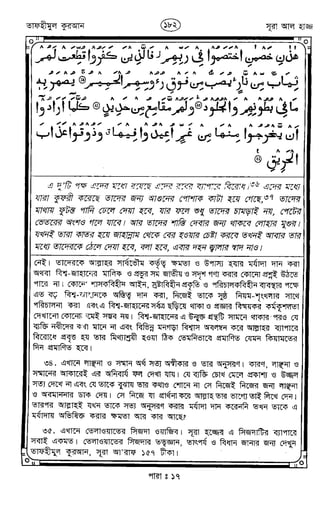 তাফহীমুল কুরআন
১৮২
সূরা আল হাজ্জ
هٰذٰنِ خَصْمٰنِ اخْتَصَمُوْا فِيْ رَبِّهِمْ فَالَّذِيْنَ كَفَرُوْا قُطِّعَتْ لَهُمْ
ثِيَابٌ مِّنْ نَّارٍ يُصَبُّ مِنْ فَوْقِ رُءُوْسِهِمُ الْحَمِيْمُ ﴿١٩﴾ يُصْهَرُ بِهٖ
مَا فِيْ بُطُوْنِهِمْ وَالْجُلُوْدُ ﴿٢٠﴾ وَلَهُمْ مَّقَامِعُ مِنْ حَدِيْدٍ ﴿٢١﴾ كُلَّمَا اَرَادُوْا
اَنْ يَّخْرُجُوْا مِنْهَا مِنْ غَمٍّ اُعِيْدُوْا فِيْهَا وَذُوْقُوْا عَذَابَ
الْحَرِيْقِ ﴿٢٢﴾
এ দু'টি পক্ষ এদের মধ্যে রয়েছে এদের রবের ব্যাপারে বিরোধ।৩৬ এদের মধ্যে
যারা কুফরী করেছে তাদের জন্য আগুনের পোশাক কাটা হয়ে গেছে,৩৭ তাদের
মাথায় ফুটন্ত পানি ঢেলে দেয়া হবে, যার ফলে শুধু তাদের চামড়াই নয়, পেটের
ভেতরের অংশও গলে যাবে। আর তাদের শাস্তি দেবার জন্য থাকবে লোহার মুগুর।
যখনই তারা কাতর হয়ে জাহান্নাম থেকে বের হওয়ার চেষ্টা করবে তখনই আবার তার
মধ্যে তাদেরকে ঠেলে দেয়া হবে, বলা হবে, এবার দহন জ্বালার স্বাদ নাও।
নেই। তাদেরকে আল্লাহর সার্বভৌম কর্তৃত্ব ক্ষমতা ও উপাস্য হবার মর্যাদা দান করা
অথবা বিশ্ব-জাহানের মালিক ও প্রভুর সম জাতীয় ও সদৃশ গণ্য করার কোনো প্রশ্নই উঠতে
পারে না। কোনো শাসকবিহীন আইন, স্রষ্টাবিহীন প্রকৃতি ও পরিচালকবিহীন ব্যবস্থার পক্ষে
এত বড় বিশ্ব-জাহানকে অস্তিত্ব দান করা, নিজেই তাকে সুষ্ঠু নিয়ম-শৃংখলার সাথে
পরিচালনা করা এবং এ বিশ্ব-জাহানের সর্বত্র ছড়িয়ে থাকা ক্ষমতা ও প্রজ্ঞার বিস্ময়কর কর্মকুশলতা
দেখানো কোনো ক্রমেই সম্ভব নয়। বিশ্ব-জাহানের এ উন্মুক্ত গ্রন্থটি সামনে থাকার পরও যে
ব্যক্তি নবীদের কথা মানে না এবং বিভিন্ন মনগড়া বিশ্বাস অবলম্বন করে আল্লাহর ব্যাপারে
বিরোধে প্রবৃত্ত হয় তার মিথ্যাশ্রয়ী হওয়া ঠিক তেমনিভাবে প্রমাণিত যেমন কিয়ামতের
দিন প্রমাণিত হবে।
৩৪. এখানে লাঞ্ছনা ও সম্মান অর্থ সত্য অস্বীকার ও তার অনুসরণ। কারণ, লাঞ্ছনা ও
সম্মানের আকারেই এর অনিবার্য ফল দেখা যায়। যে ব্যক্তি চোখ মেলে প্রকাশ্য ও উজ্জ্বল
সত্য দেখে না এবং যে তাকে বুঝায় তার কথাও শোনে না সে নিজেই নিজের জন্য লাঞ্ছনা
ও অবমাননার ডাক দেয়। সে নিজে যা প্রার্থনা করে আল্লাহ তার ভাগ্যে তাই লিখে দেন।
তারপর আল্লাহই যখন তাকে সত্য অনুসরণ করার মর্যাদা দান করেননি তখন তাকে এ
মর্যাদায় অভিষিক্ত করার ক্ষমতা আর কার আছে?
৩৫. এখানে তেলাওয়াতের সিজদা ওয়াজিব। সূরা হজ্জের এ সিজদাটির ব্যাপারে
সবাই একমত। তেলাওয়াতের সিজদার তত্ত্বজ্ঞান, তাৎপর্য ও বিধান জানার জন্য দেখুন
তাফহীমুল কুরআন, সূরা আ'রাফ ১৫৭ টীকা।
পারা ঃ ১৭